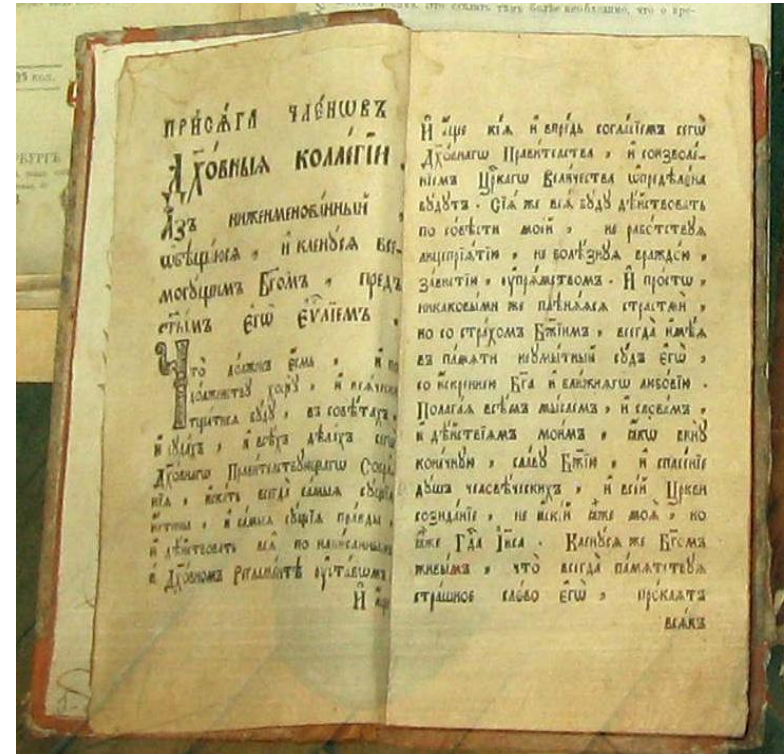 о сдѣлать тѣмъ болѣе необходимо, что о вре-
коп.
РБУРГЪ
ПРИСѦ́ГА ЧЛЕ́НѠВЪ
ДХ҃О́ВНЫѦ КОЛЛЕ́ГІИ .
А҆́зъ нижеименова́нный ,
ѡ҆бѣща́юсѧ , и҆ клену́сѧ все-
могу́щимъ Бг҃омъ , пре́дъ
ст҃ы́мъ є҆гѡ̀ є҆ѵⷢ҇лїемъ ,
Что̀ до́лженъ є҆́смь , и҆ по
до́лженству хощꙋ̀ , и҆ всѧ́чески
тщатисѧ бꙋ́дꙋ , въ совѣ́тахъ ,
и҆ сꙋда́хъ , и҆ всѣ́хъ дѣла́хъ сегѡ̀
Дх҃о́внагѡ Прави́телствꙋющагѡ Собра-
нїѧ , и҆ска́ть всегда̀ са́мыѧ сꙋ́щїѧ
и҆́стины , и҆ са́мыѧ сꙋ́щїѧ пра́вды ,
и҆ дѣ́йствовать всѧ̀ по напи́саннымъ
в Дх҃о́вномъ Регла́ментѣ ᲂу҆ста́вамъ ,
И҆ а҆́ще
И҆ а҆́ще кі́ѧ и҆ впре́дь согла́сїемъ сегѡ̀
Дх҃о́внагѡ Прави́телства , и҆ соизволе́-
нїемъ Цр҃кагѡ Вели́чества ѡ҆предѣлена
бꙋ́дꙋтъ . Сїѧ̀ же всѧ̀ бꙋ́дꙋ дѣ́йствовать
по со́вѣсти мое́й , не рабо́тствꙋѧ
лицепрїѧ́тїю , не болѣ́знꙋѧ враждо́ю ,
за́вистїю , ᲂу҆прѧ́мствомъ . И҆ про́стѡ ,
никаковы́ми же плѣнѧ́ѧсѧ страстьмѝ ,
но со стра́хомъ Бж҃їимъ , всегда̀ и҆мѣ́ѧ
въ па́мѧти неумы́тный сꙋ́дъ є҆гѡ̀ ,
со и҆́скреннею Бг҃а и҆ бли́жнѧгѡ любо́вїю .
Полага́ѧ всѣ́мъ мы́слемъ , и҆ слове́мъ ,
и҆ дѣ́йствїѧмъ мои́мъ , ꙗ҆́кѡ винꙋ̀
коне́чнꙋю , сла́вꙋ Бж҃їю , и҆ спасе́нїе
дꙋ́шъ человѣ́ческихъ , и҆ все́й Цр҃кви
созида́нїе , не и҆скі́й ꙗ҆́же моѧ̀ , но
ꙗ҆́же Гд҃а І҆и҃са . Клену́сѧ же Бг҃омъ
живы́мъ , что̀ всегда̀ па́мѧтствꙋѧ
стра́шное сло́во є҆гѡ̀ , про́клѧтъ
всѧ́къ